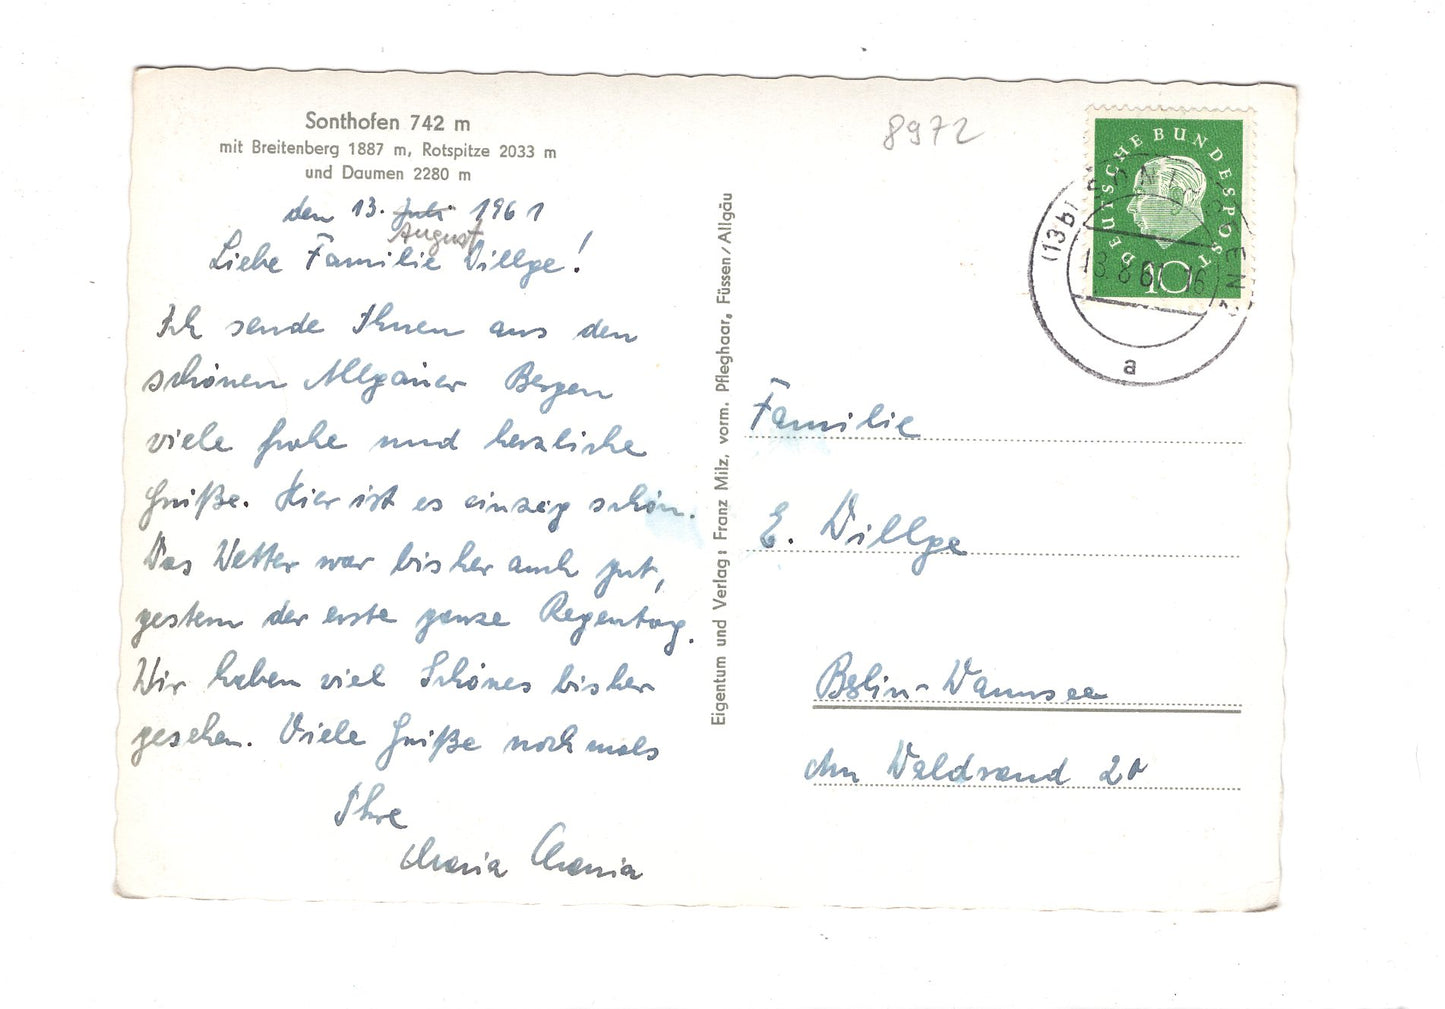 Sonthofen 742 m
mit Breitenberg 1887 m, Rotspitze 2033 m
und Daumen 2280 m
den 13. Juli 1961
August
Liebe Familie Dillge!
Ich sende Ihnen aus den
schönen Allgäuer Bergen
viele frohe und herzliche
Grüße. Hier ist es einzig schön.
Das Wetter war bisher auch gut,
gestern der erste ganze Regentag.
Wir haben viel Schönes bisher
gesehen. Viele Grüße nochmals
Ihre
Maria
Eigentum und Verlag: Franz Milz, vorm. Pfleghaar, Füssen/Allgäu
8972
DEUTSCHE BUNDESPOST
10
(13b) SONTHOFEN
13.8.61.16
a
Familie
E. Dillge
Berlin-Wannsee
Am Waldrand 20